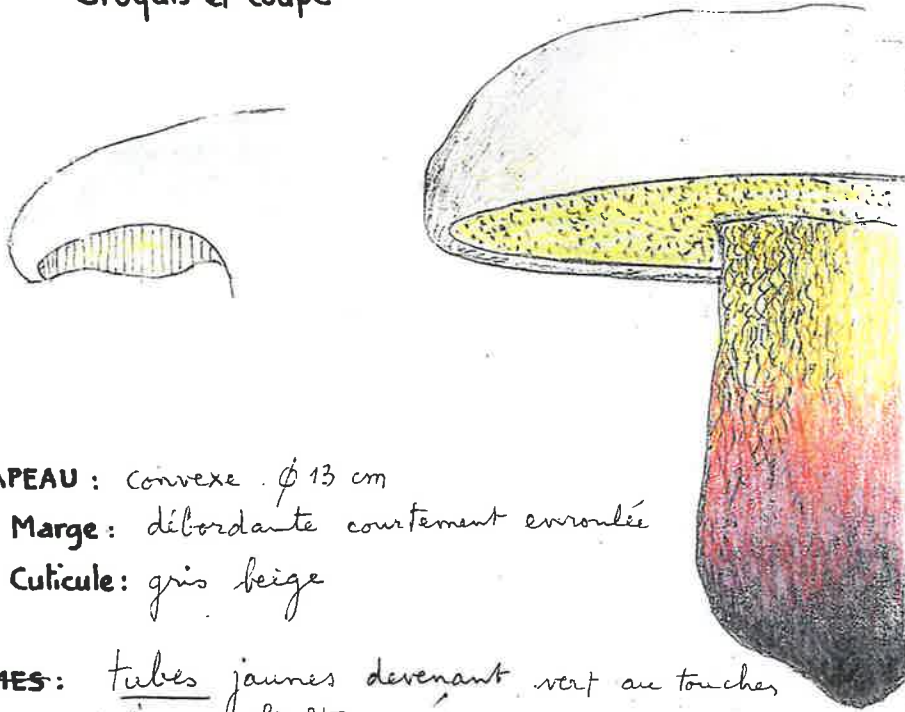 Croquis et coupe
APEAU : convexe . φ 13 cm
Marge : débordante courtement enroulée
Cuticule : gris beige
MES : tubes jaunes devenant vert au touches